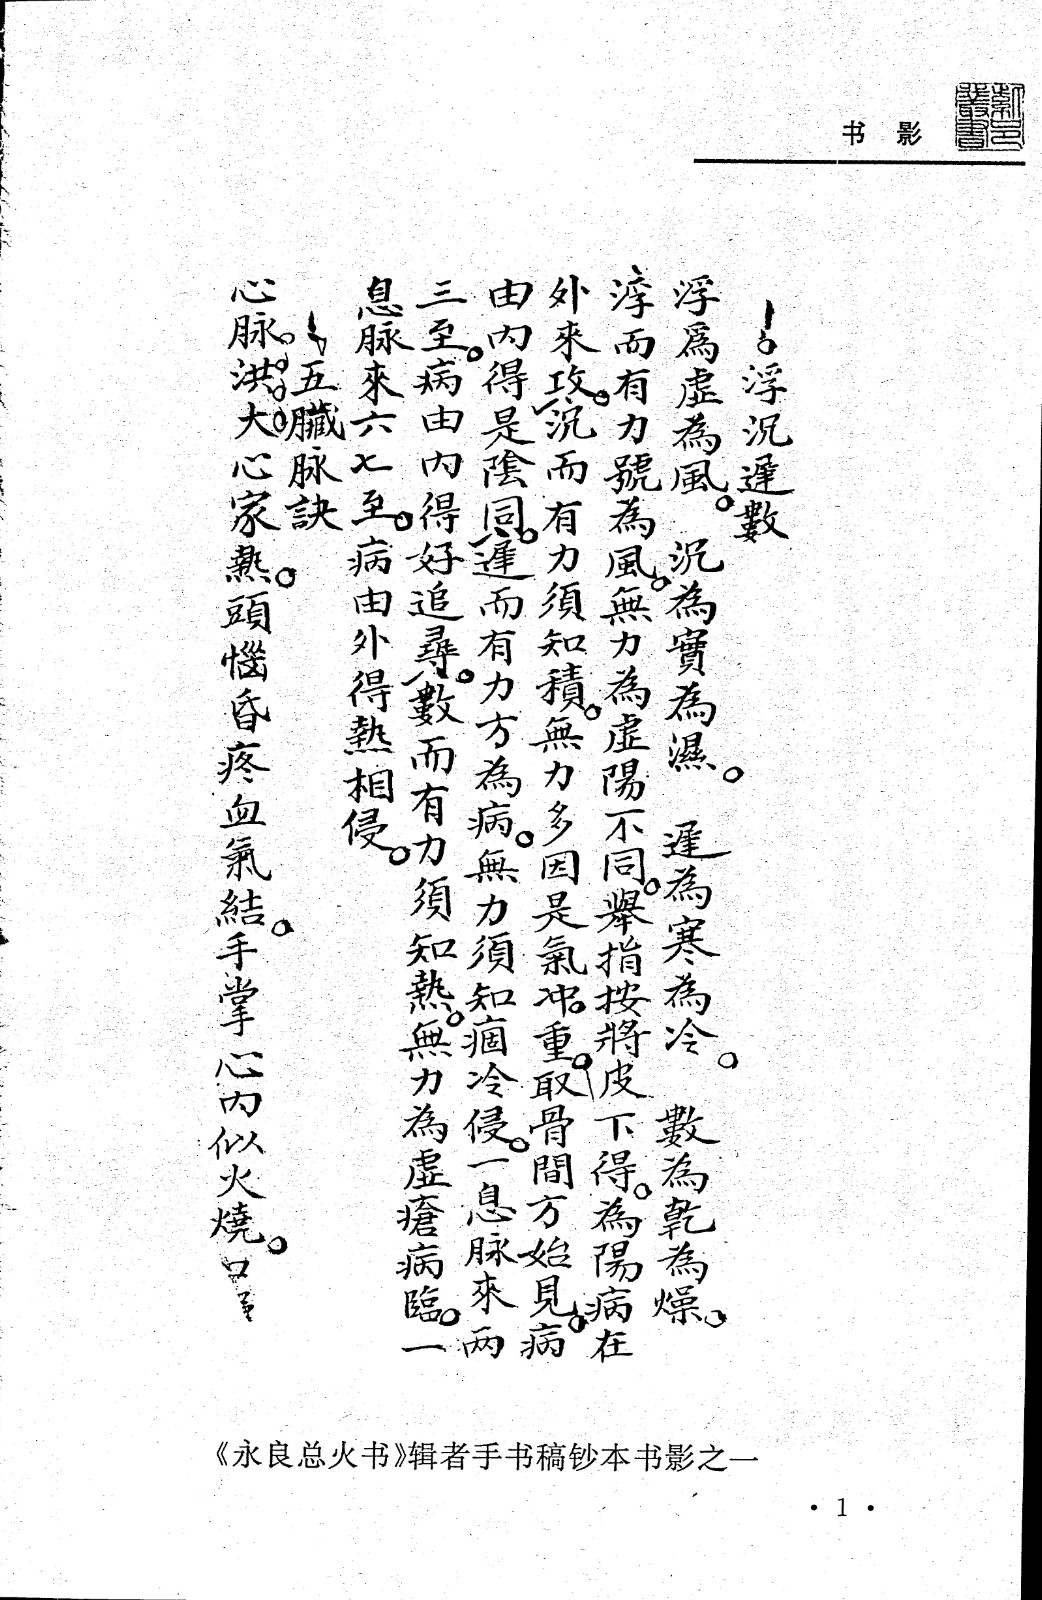 书影
浮沉遲數
浮爲虛為風。沉為實為濕。遲為寒為冷。數為乾為燥。
浮而有力號為風。無力為虛陽不同。舉指按將皮下得。為陽病在
外來攻。沉而有力須知積。無力多因是氣冲。重取骨間方始見。病
由內得是陰同。遲而有力方為病。無力須知痼冷侵。一息脉來两
三至。病由內得好追尋。數而有力須知熱。無力為虛瘡病臨。一
息脉來六七至。病由外得熱相侵。
五臟脉訣
心脉洪大心家熱。頭惱昏疼血氣結。手掌心內似火燒。口
《永良总火书》辑者手书稿钞本书影之一
·1·